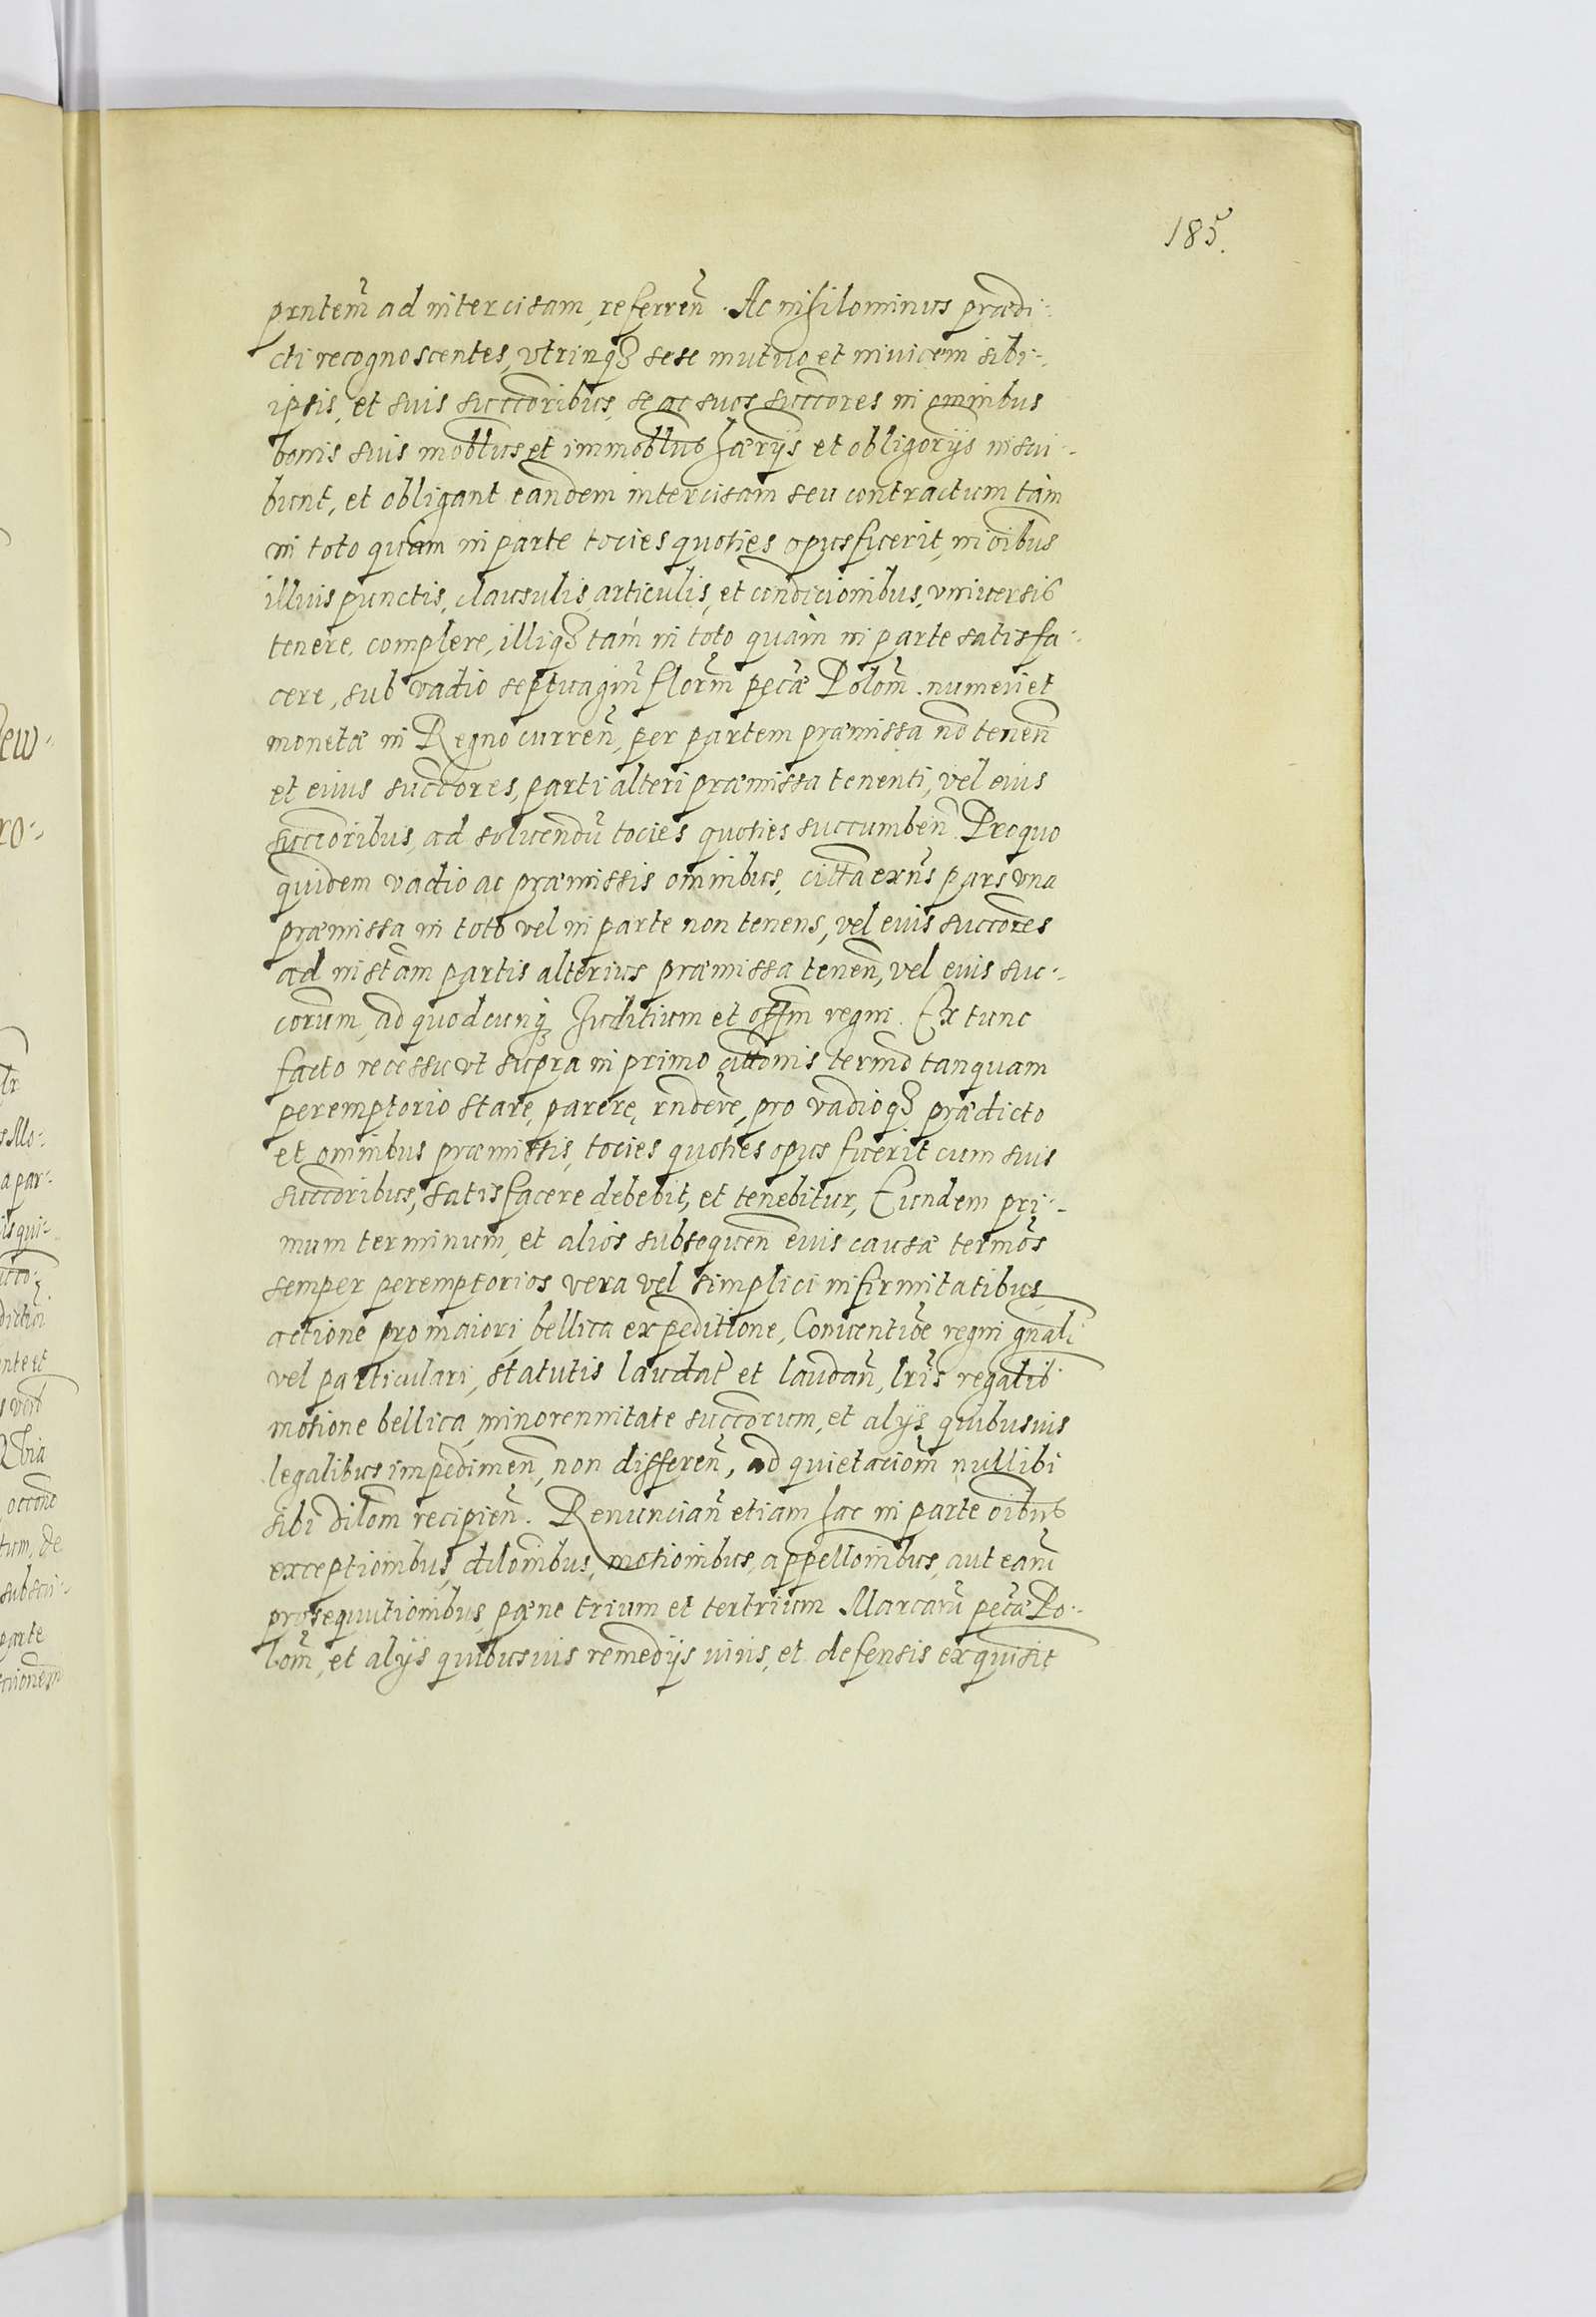 185.
prntem̃ ad intercisam, referren̄. Ac nihilominus prædi-
cti recognoscentes, vtrinq3 sese mutuo et inuicem sibi-
ipsis, et suis succcoribus, se ac suos succcores in omnibus
bonis suis mobĺbus et immobĺbus hærijs et obligorijs inscri-
bunt, et obligant eandem intercisam seu contractum tàm
in toto quàm in parte tocies quoties opus fuerit, in oĩbus
illius punctis, clausulis, articulis, et condicionibus, vniuersis
tenere, complere, illiq3 tàm in toto quàm in parte satisfa-
cere, sub vadio septuagin̄ florm̃ pecæ Polom̃. numeri et
monetæ in Regno curren̄, per partem præmissa nō tenen̄
et eius succcores, parti alteri præmissa tenenti, vel eius
succcoribus, ad soluendũ tocies quoties succumben̄. Pro quo
quidem vadio ac præmissis omnibus, citta exñs pars vna
præmissa in toto vel in parte non tenens, vel eius succores
ad instãm partis alterius præmissa tenen̄, vel eius suc-
corum, ad quodcunq3 Juditium et offm̃ regni. Ex tunc
facto recessu vt supra in primo cittonis termno tanquam
peremptorio stare, parere, rñdere, pro vadioq3 prædicto
et omnibus præmissis, tocies quoties opus fuerit cum suis
succcoribus, satisfacere debebit, et tenebitur, Eundem pri-
mum terminum, et alios subsequen̄ eius causæ termõs
semper peremptorios vera vel simplici infirmitatibus,
actione pro maiori, bellica expeditione, Conuentiõe regni gnãli
vel particulari, statutis laudat̃ et laudan̄, lrĩs regalib
motione bellica, minorennitate succorum, et alijs quibusuis
legalibus impedimen̄, non differen̄, ad quietaciom̃ nullibi
sibi dilom̃ recipien̄. Renuncian̄ etiam hac in parte oĩbus
exceptionibus, dilonibus, motionibus, appellonibus, aut earũ
prosequutionibus, pæne trium et tertrium Marcarũ pecæ Po-
lom̃, et alijs quibusuis remedijs iuris, et defensis exquisit